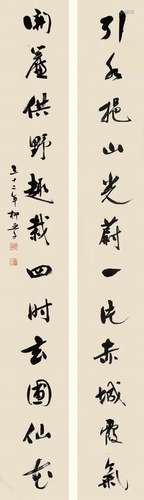 引水挹山光蔚一片赤城霞氣
開簾供野趣栽四时玄圃仙花